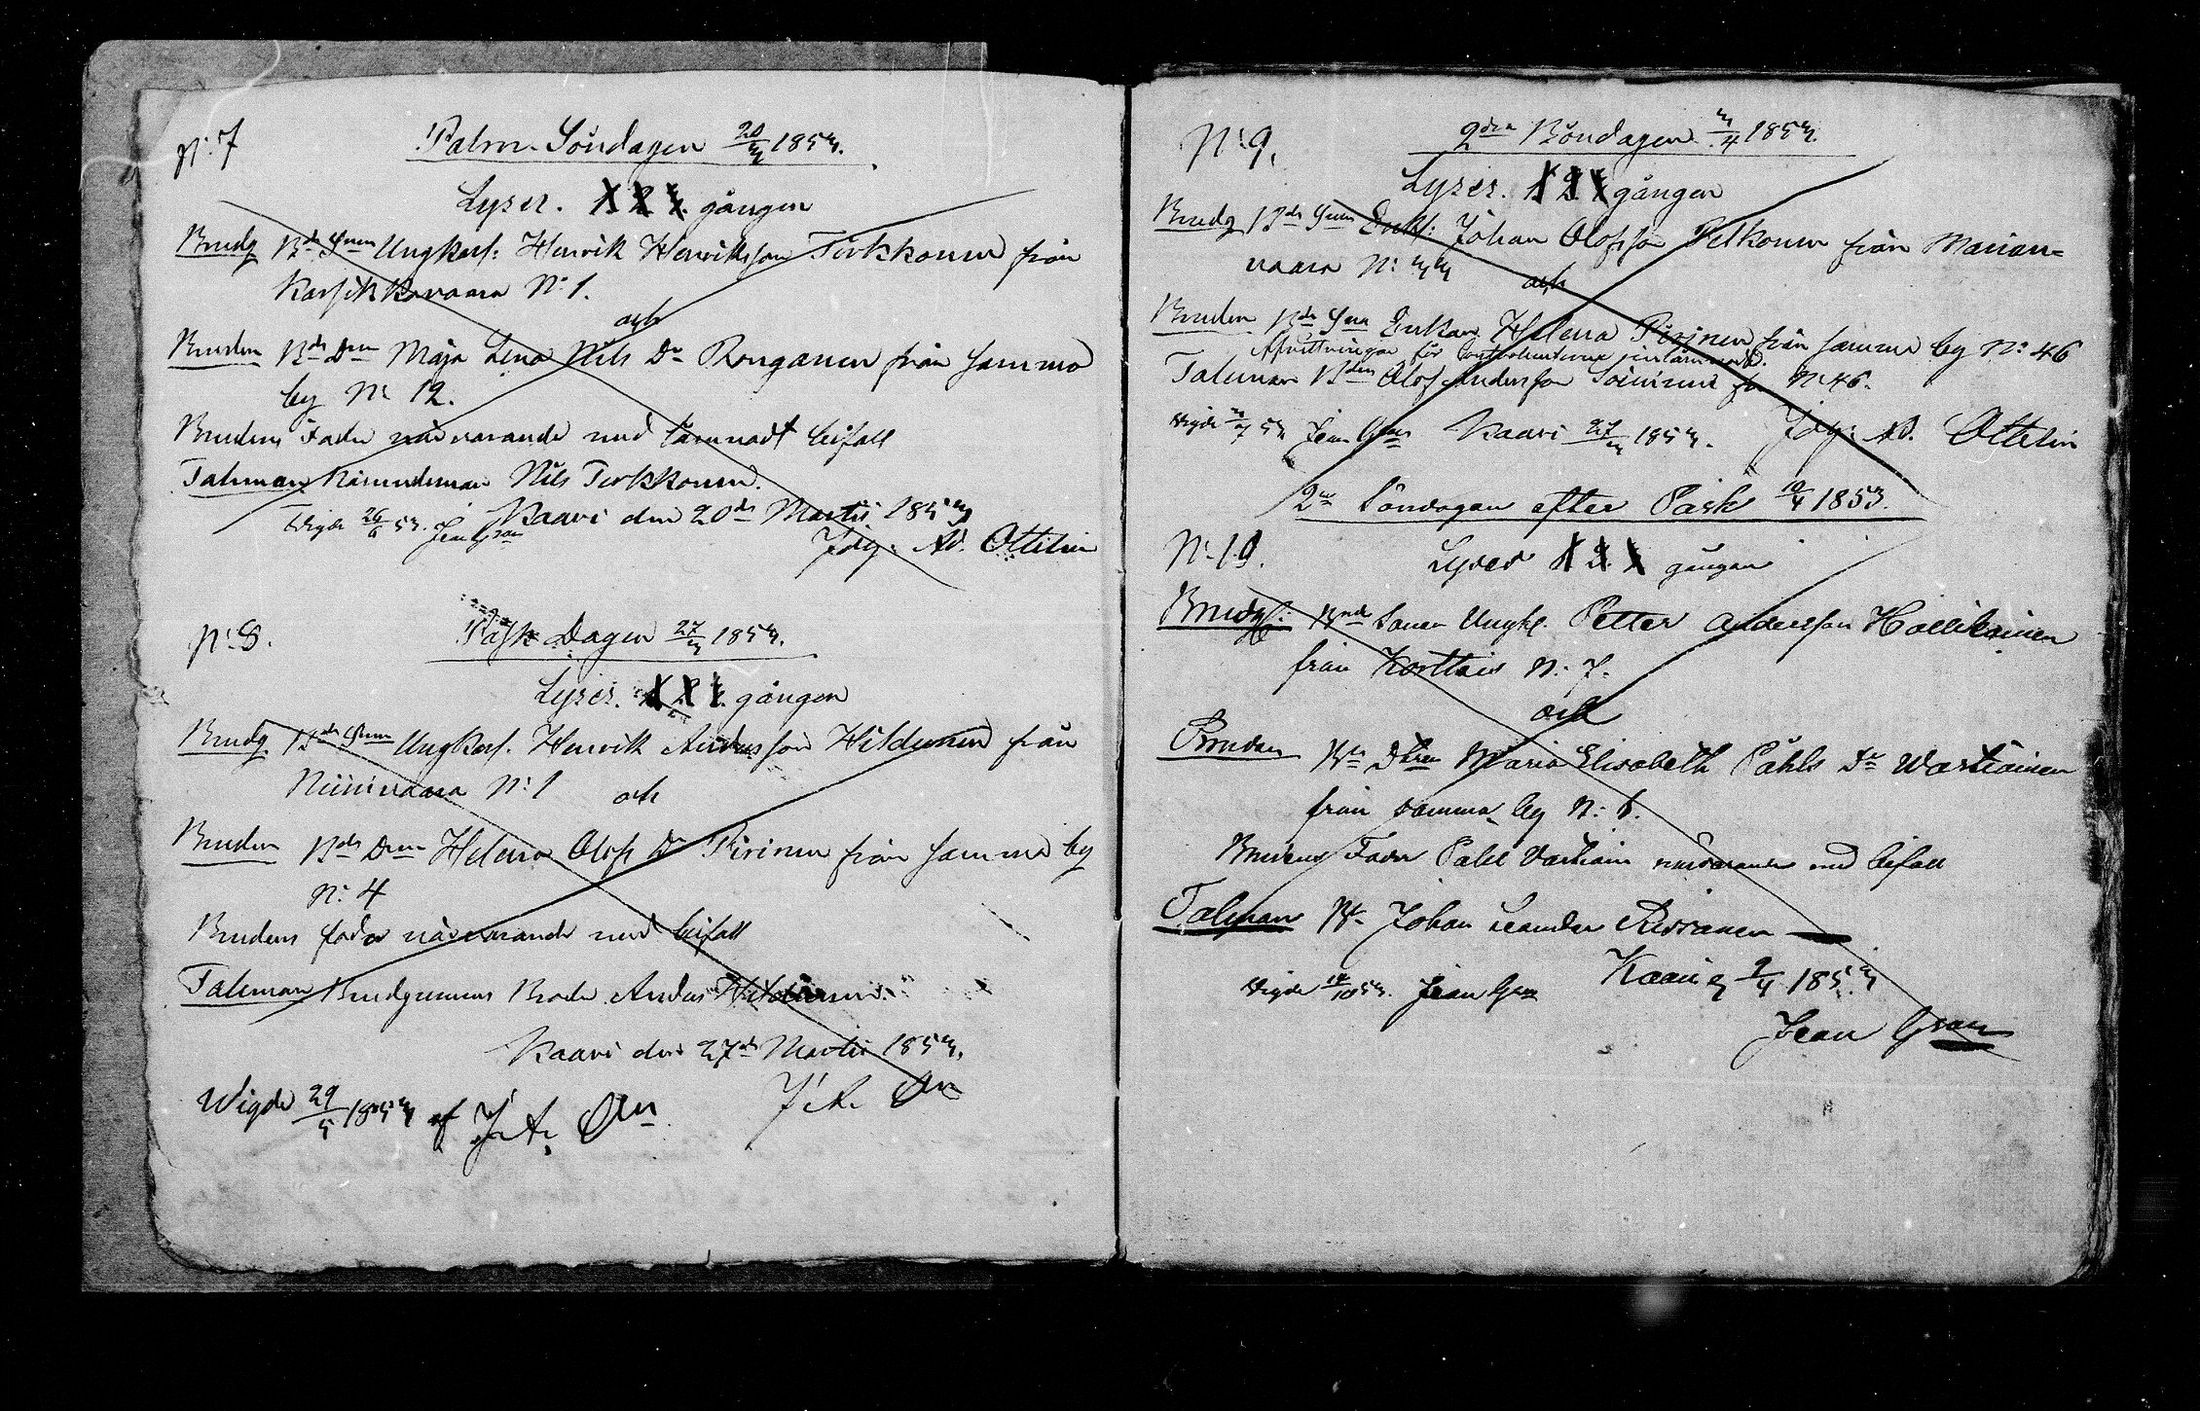 N:7
Palm Söndagen 20/3 1853.
Lyses. 1. 2 3. gången
Brudg Bde Sonen Ungkarl: Henrik Henriksson Tirkkonen från
Karsikkovaara N:1.
och
Bruden Bde Dren Maja Lena Nils Dr Ronganen från samma
by N: 12.
Brudens Fader närvarande med lämnadt bifall
Talman Nämndeman Nils Tirkkonen.
Kaavi den 20de Martii 1853
Wigde 26/6 53. Jean Gran
Fdg: Ad. Ottelin
N:8.
Påsk Dagen 27/3 1853.
Lyses. 1 2 3. gången
Brudg. Bde Sonen Ungkarl. Henrik Andersson Hildunen från
Niinivaara N:1 och
Bruden Bde Dren Helena Olofs Dr Pirinen från samma by
N: 4
Brudens fader närvarande med bifall
Talman Brudgummens Broder Anders Hildunen.
Kaavi den 27de Martii 1853.
Wigde 29/5 1853 af
N:9.
2dra Böndagen 3/4 1853.
Lyses. 1 2. 3 gången
Brudg Bde Son Enkl: Johan Olofsson Pelkonen från Marian=
vaara N: 33
och
Bruden Bde Enkan Helena Pirinen från samma by N: 46
Afvittringar för inlämnade.
Talman Olof Andersson Soininen fr N 46.
Wigde 53 Jean Gran Kaavi 27/3 1853. Fdg: Ad. Ottelin
2dra Söndagen efter Påsk 10/4 1853.
N:10.
Lyses 1 2. 3 gången
Brudg: Bonde Sonen Ungkl. Petter Andersson Hollikainen
från Korttais N: 7.
och
Bruden Bde Dtren Maria Elisabeth Påhls Dr Wartiainen
från samma by N: 6.
Brudens Fader Påhl Vartiain närvarande med bifall
Talman Bde Johan Leander Rissanen
Wigde 53. Jean Gran Kaavi 9/4 1853
Jean Gran